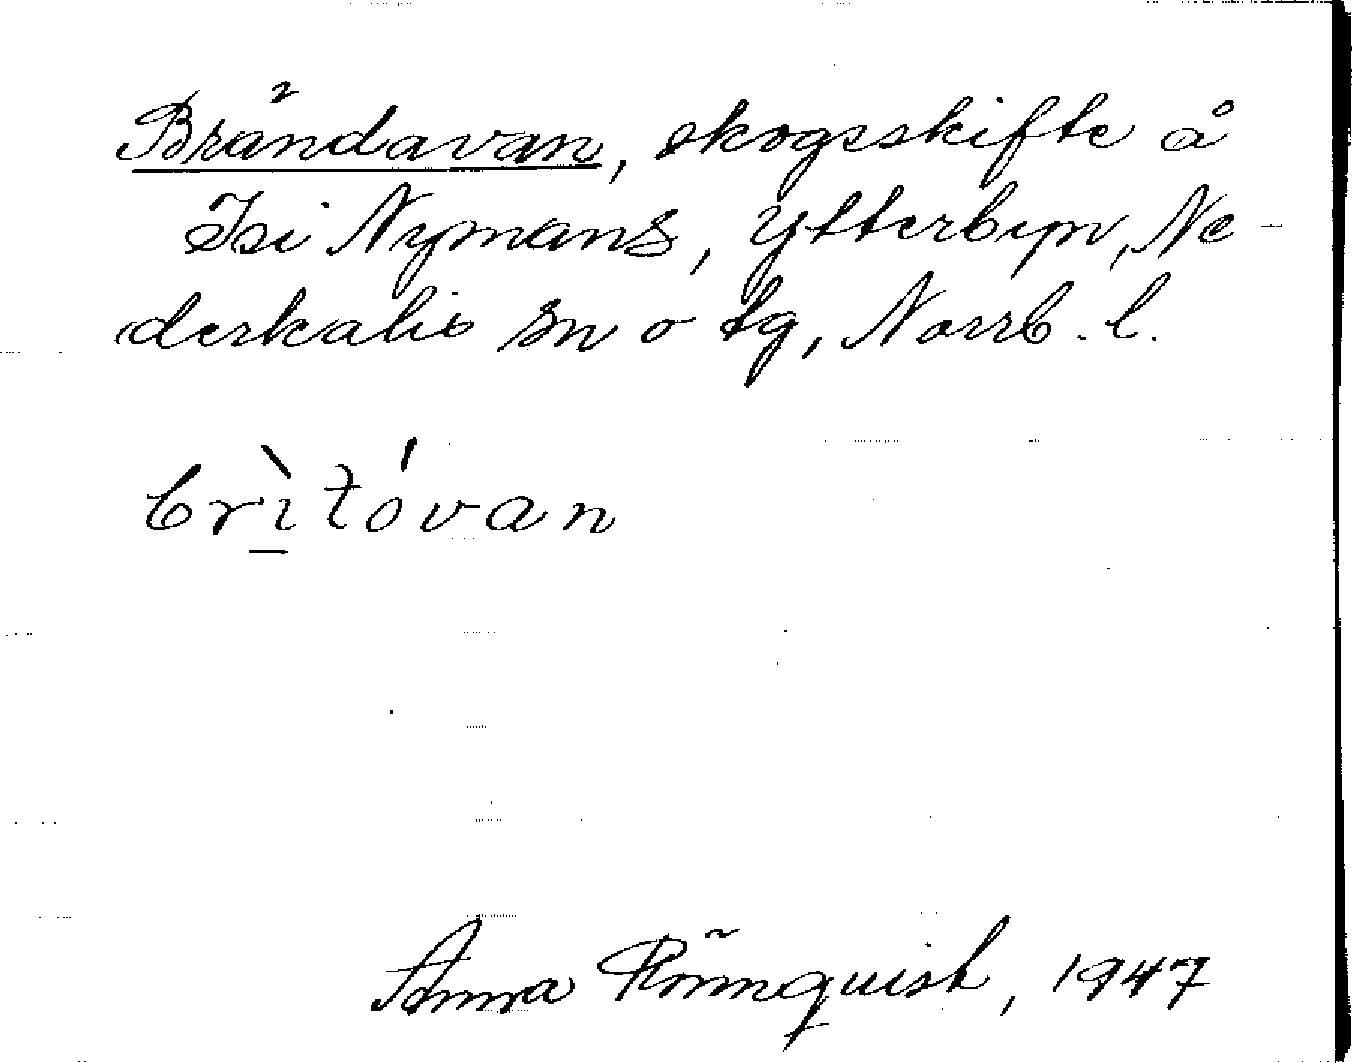 Brändavan, skogsskifte å
Isi Nymans, Ytterbyn, Ne-
derkalix sn o tg, Norrb. l.
brìtóvan
Anna Rönnquist, 1947